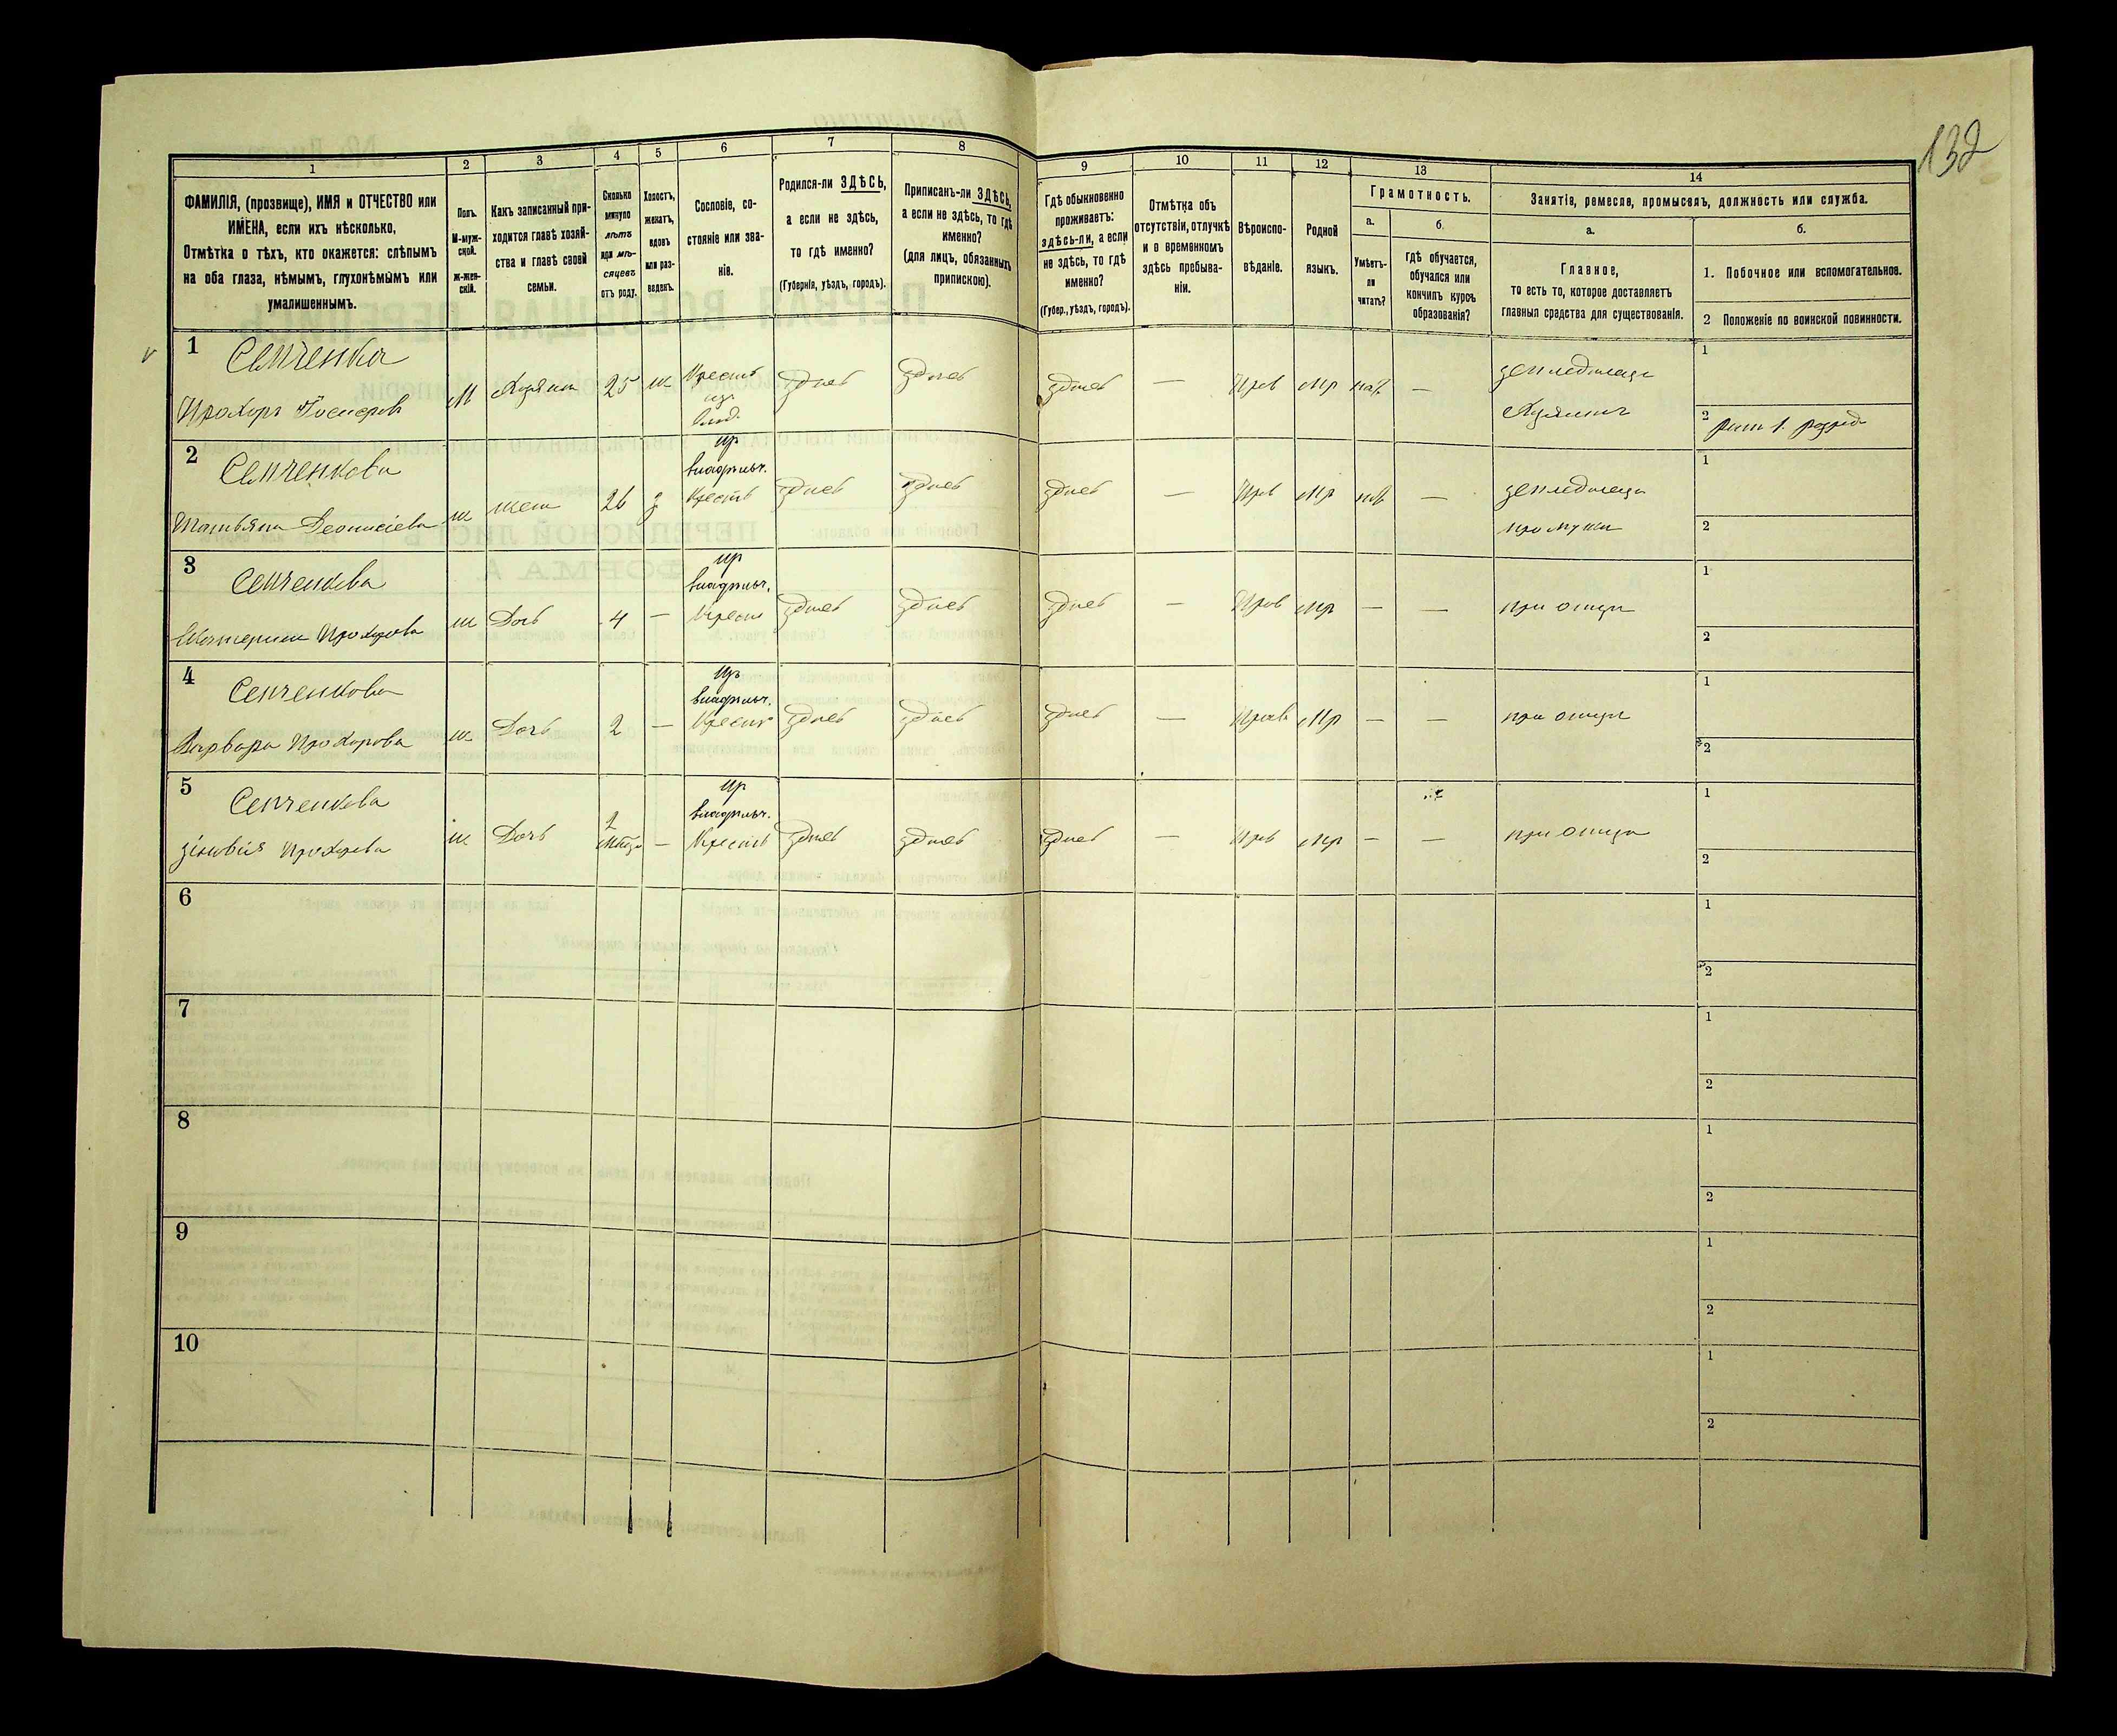 132
1 2 3 4 5 6 7 8 9 10 11 12 13 14
ФАМИЛІЯ, (прозвище), ИМЯ и ОТЧЕСТВО или
ИМЕНА, если ихъ нѣсколько,
Отмѣтка о тѣхъ, кто окажется: слѣпымъ
на оба глаза, нѣмымъ, глухонѣмымъ или
умалишеннымъ.
Полъ.
М-муж-
ской.
ж-жен-
скій.
Какъ записанный при-
ходится главѣ хозяй-
ства и главѣ своей
семьи.
Сколько
минуло
лѣтъ
или мѣ-
сяцевъ
отъ роду.
Холостъ,
женатъ,
вдовъ
или раз-
веденъ.
Сословіе, со-
стояніе или зва-
ніе.
Родился-ли ЗДѢСЬ,
а если не здѣсь,
то гдѣ именно?
(Губернія, уѣздъ, городъ).
Приписанъ-ли ЗДѢСЬ,
а если не здѣсь, то гдѣ
именно?
(для лицъ, обязанныхъ
припискою).
Гдѣ обыкновенно
проживаетъ:
здѣсь-ли, а если
не здѣсь, то гдѣ
именно?
(Губер., уѣздъ, городъ).
Отмѣтка объ
отсутствіи, отлучкѣ
и о временномъ
здѣсь пребыва-
ніи.
Вѣроиспо-
вѣданіе.
Родной
языкъ.
Грамотность.
а.
Умѣетъ-
ли
читать?
б.
Гдѣ обучается,
обучался или
кончилъ курсъ
образованія?
Занятіе, ремесло, промыселъ, должность или служба.
а.
Главное,
то есть то, которое доставляетъ
главныя средства для существованія.
б.
1. Побочное или вспомогательное.
2 Положеніе по воинской повинности.
1 Семченко
Прохоръ
М Хозяинъ 25 ж Крест здѣсь здѣсь здѣсь — Прав мр —
земледѣлецъ
Хозяинъ
1
2 разряд
2 Семченкова
Татьяна Деонисіева
ж жена 26 з Крест здѣсь здѣсь здѣсь — Прав мр —
земледѣлец
при мужи
1
2
3 Семченкова
Екатерина Прохорова
ж Дочь 4 — Крест здѣсь здѣсь здѣсь — Прав мр — — при отцу
1
2
4 Семченкова
Варвара Прохорова
ж Дочь 2 — Крест здѣсь здѣсь здѣсь — Прав мр — — при отцу
1
2
5 Семченкова
Зіновія Прохорова
ж Дочь — Крест здѣсь здѣсь здѣсь — Прав мр — — при отцу
1
2
6
1
2
7
1
2
8
1
2
9
1
2
10
1
2